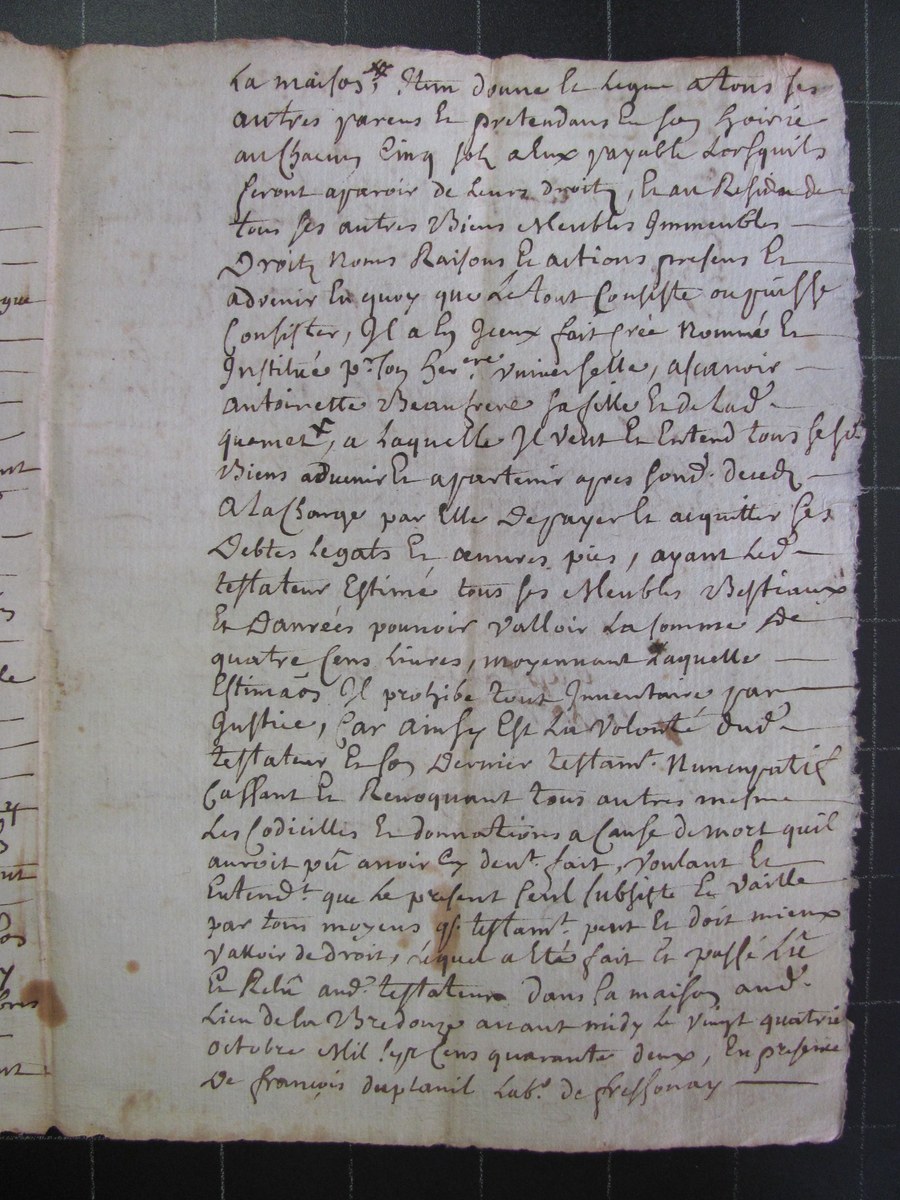 La maison, Item donne Et Legue a tous ses
autres parens Et pretendans En son hoirie
a un Chacun Cinq solz a Eux payable Lorsquils
feront aparoir de Leurs droitz, Et au Residu de
tous ses autres Biens Meubles Immeubles
Droitz Noms Raisons Et actions presens Et
advenir En quoy que Le tout Consiste ou puisse
Consister, Il a En Iceux fait Créé Nommé Et
Institué pr son herere. universelle, ascavoir
antoinette Beaufrere sa fille Et de Lad.
quemet, a Laquelle Il veut Et Entend tous sesd.
Biens advenir Et apartenir apres sond. decedz
a la Charge par Elle De payer Et acquitter ses
Debtes Legats Et œuvres pies, ayant Led.
testateur Estimé tous ses Meubles Bestiaux
Et Danrées pouvoir Valloir La somme De
quatre Cens Livres, moyennant Laquelle
Estimaon Il prohibe tout Inventaire par
Justice, Car ainsy Est La Volonté dud.
testateur Et son Dernier testamt. Nuncupatif
Cassant Et Revoquant tous autres mesme
Les Codicilles Et donnations a Cause de mort quil
auroit pû avoir Cy devt. fait, Voulant Et
Entendt. que Le present seul subsiste Et Vaille
par tous moyens qe. testamt. peut Et doit mieux
Valloir de droit, Lequel a Eté fait Et passé Lû
Et Relû aud. testateur dans sa maison aud.
Lieu de la Bredouze avant midy Le vingt quatrie
octobre Mil sept Cens quarante deux, En presence
De françois duplanil Labr. de fressonay